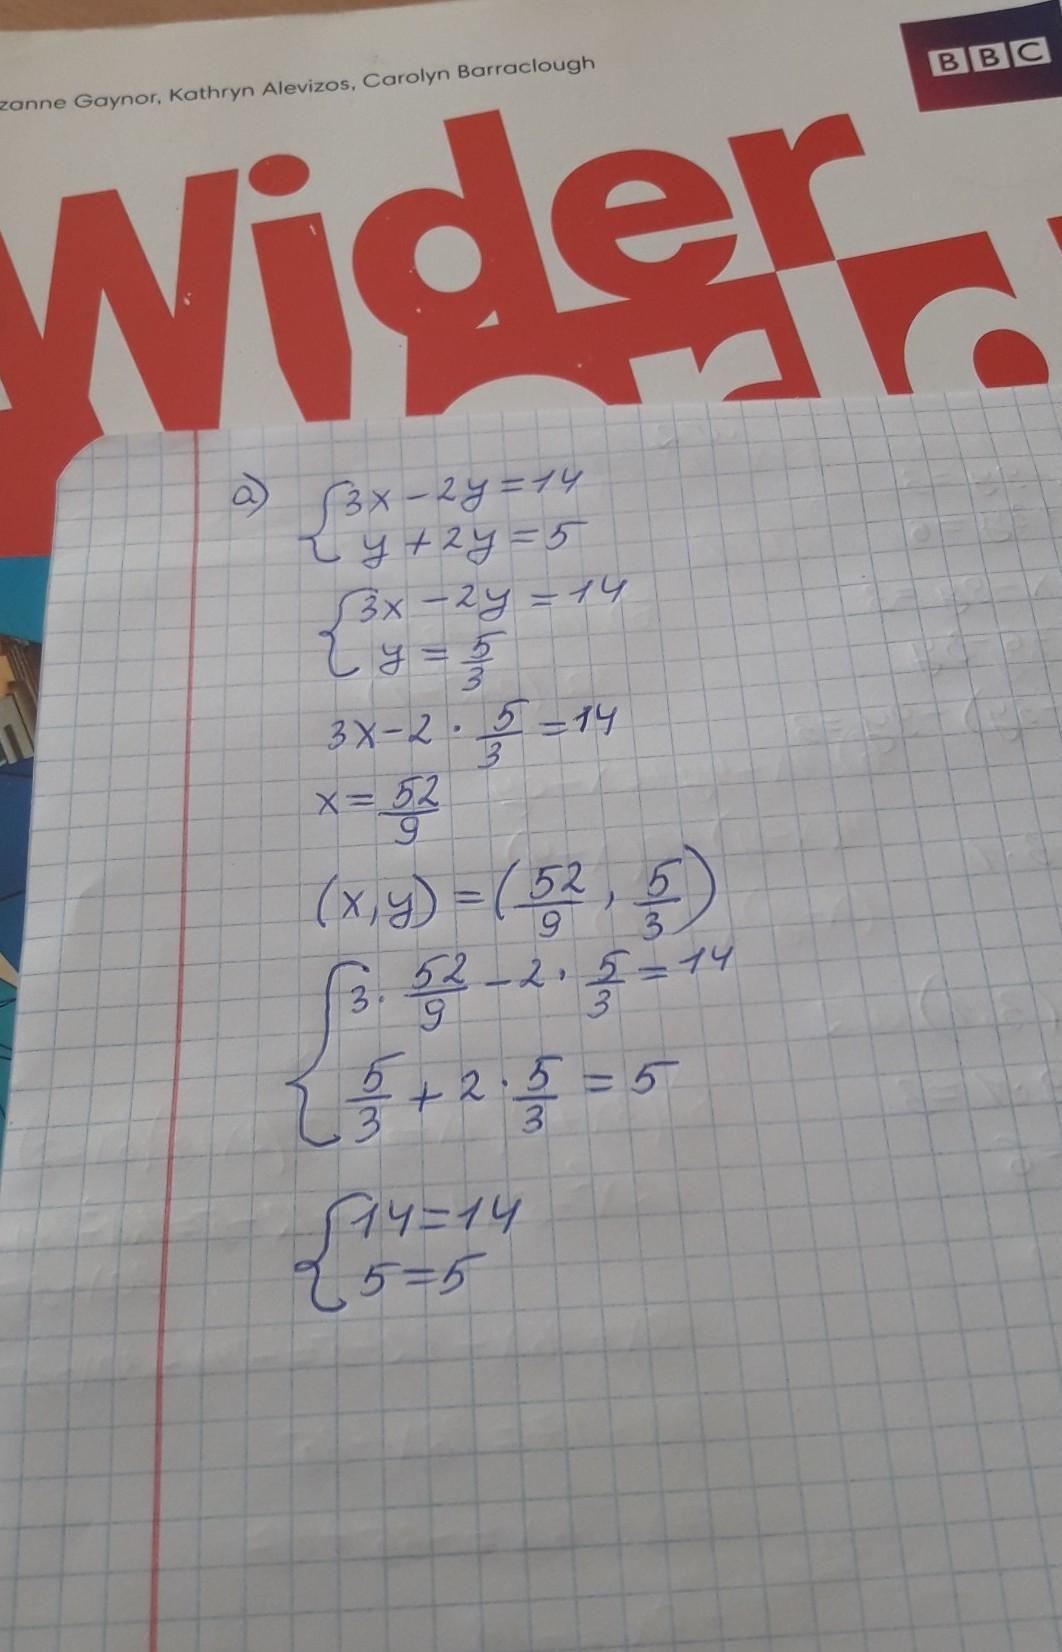 zanne Gaynor, Kathryn Alevizos, Carolyn Barraclough
BBC
Wider
a) { 3x - 2y = 14
y + 2y = 5
{ 3x - 2y = 14
y = 5/3
3x - 2 · 5/3 = 14
x = 52/9
(x, y) = (52/9, 5/3)
{ 3 · 52/9 - 2 · 5/3 = 14
5/3 + 2 · 5/3 = 5
{ 14 = 14
5 = 5